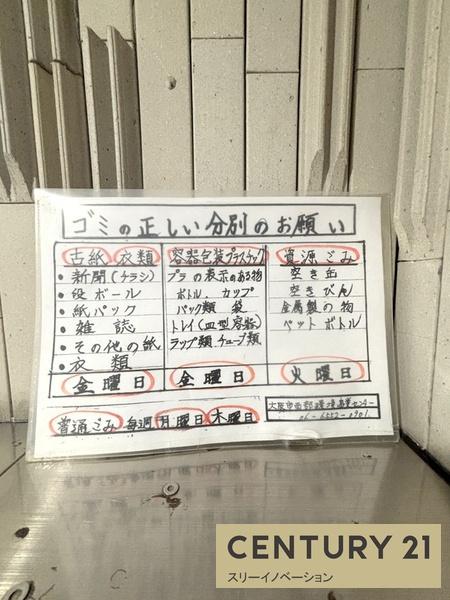 ゴミの正しい分別のお願い
古紙 衣類
・新聞(チラシ)
・段ボール
・紙パック
・雑誌
・その他の紙
・衣類
金曜日
容器包装プラスチック
プラの表示のある物
ボトル、カップ
パック類 袋
トレイ(皿型容器)
ラップ類 チューブ類
金曜日
資源ごみ
空き缶
空きびん
金属製の物
ペットボトル
火曜日
普通ごみ 毎週 月曜日 木曜日
大阪市西部環境事業センター
06-6552-0901
CENTURY 21
スリーイノベーション